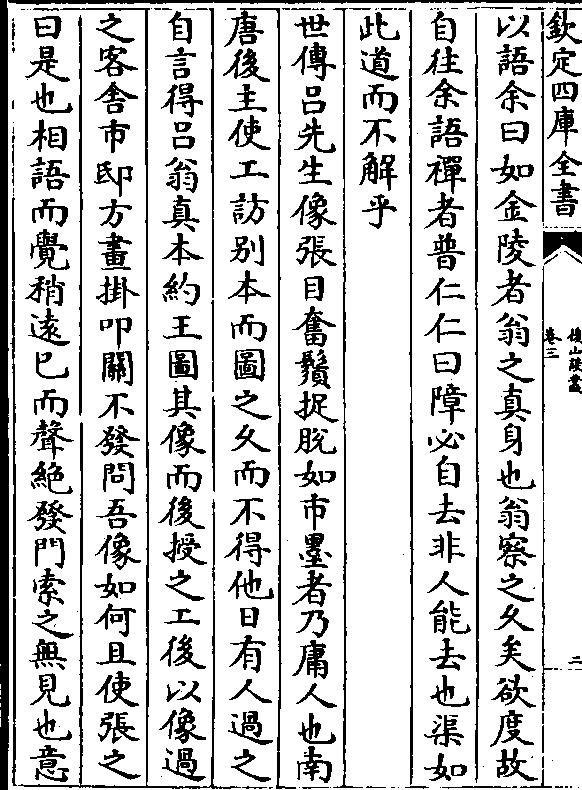 欽定四庫全書
後山談叢
卷三
二
以語余曰如金陵者翁之真身也翁察之久矣欲度故
自往余語禪者普仁仁曰障必自去非人能去也渠如
此道而不解乎
世傳吕先生像張目奮鬚捉腕如市墨者乃庸人也南
唐後主使工訪别本而圖之久而不得他日有人過之
自言得吕翁真本約王圖其像而後授之工後以像過
之客舎市邸方晝掛叩關不發問吾像如何且使張之
曰是也相語而覺稍逺已而聲絶發門索之無見也意